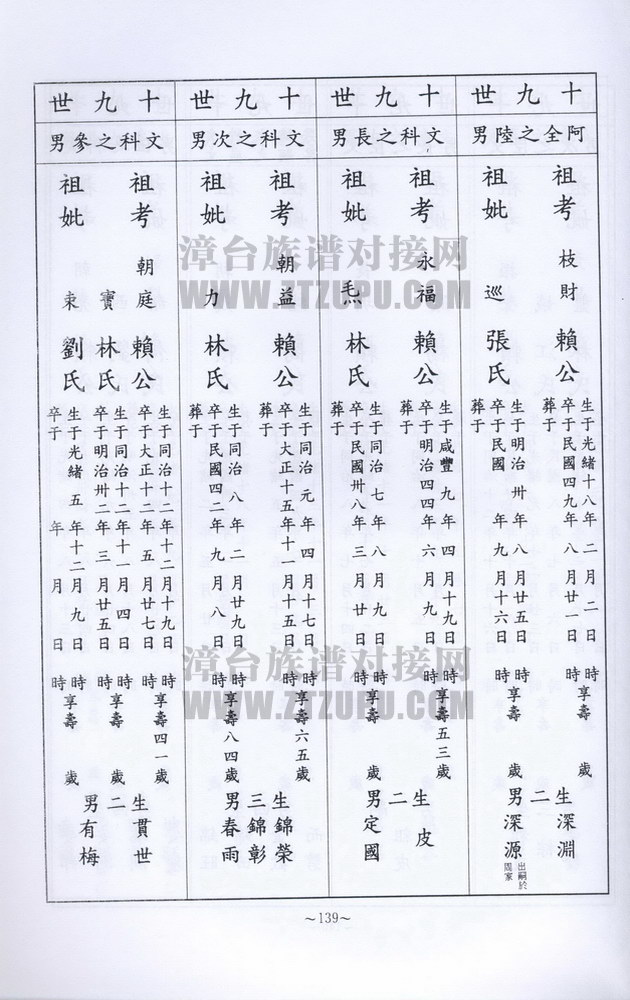 十九世
阿全之陸男
祖考 枝財 賴公
生于光緒十八年二月二日 時享壽 歲
卒于民國四九年八月廿一日 時
葬于
祖妣 巡 張氏
生于明治卅年八月廿五日 時享壽 歲
卒于民國 年九月十六日 時
葬于
生二男
深淵
深源
出嗣於
家
十九世
文科之長男
祖考 永福 賴公
生于咸豐九年四月十九日 時享壽五三歲
卒于明治四四年六月九日 時
葬于
祖妣 林氏
生于同治七年八月九日 時享壽 歲
卒于民國卅八年三月廿四日 時
葬于
生二男
皮
定國
十九世
文科之次男
祖考 朝益 賴公
生于同治元年四月十七日 時享壽六五歲
卒于大正十五年十一月十五日 時
葬于
祖妣 力 林氏
生于同治八年二月廿九日 時享壽八四歲
卒于民國四二年九月八日 時
葬于
生三男
錦榮
錦彰
春雨
十九世
文科之參男
祖考 朝庭 賴公
生于同治十二年十二月十九日 時享壽四一歲
卒于大正十二年五月廿七日 時
祖妣 寶 林氏
生于同治十二年十一月四日 時享壽 歲
卒于明治卅二年三月廿五日 時
束 劉氏
生于光緒五年十二月九日 時享壽 歲
卒于 年 月 日 時
生二男
貫世
有梅
~139~
漳台族谱对接网
WWW.ZTZUPU.COM
漳台族谱对接网
WWW.ZTZUPU.COM